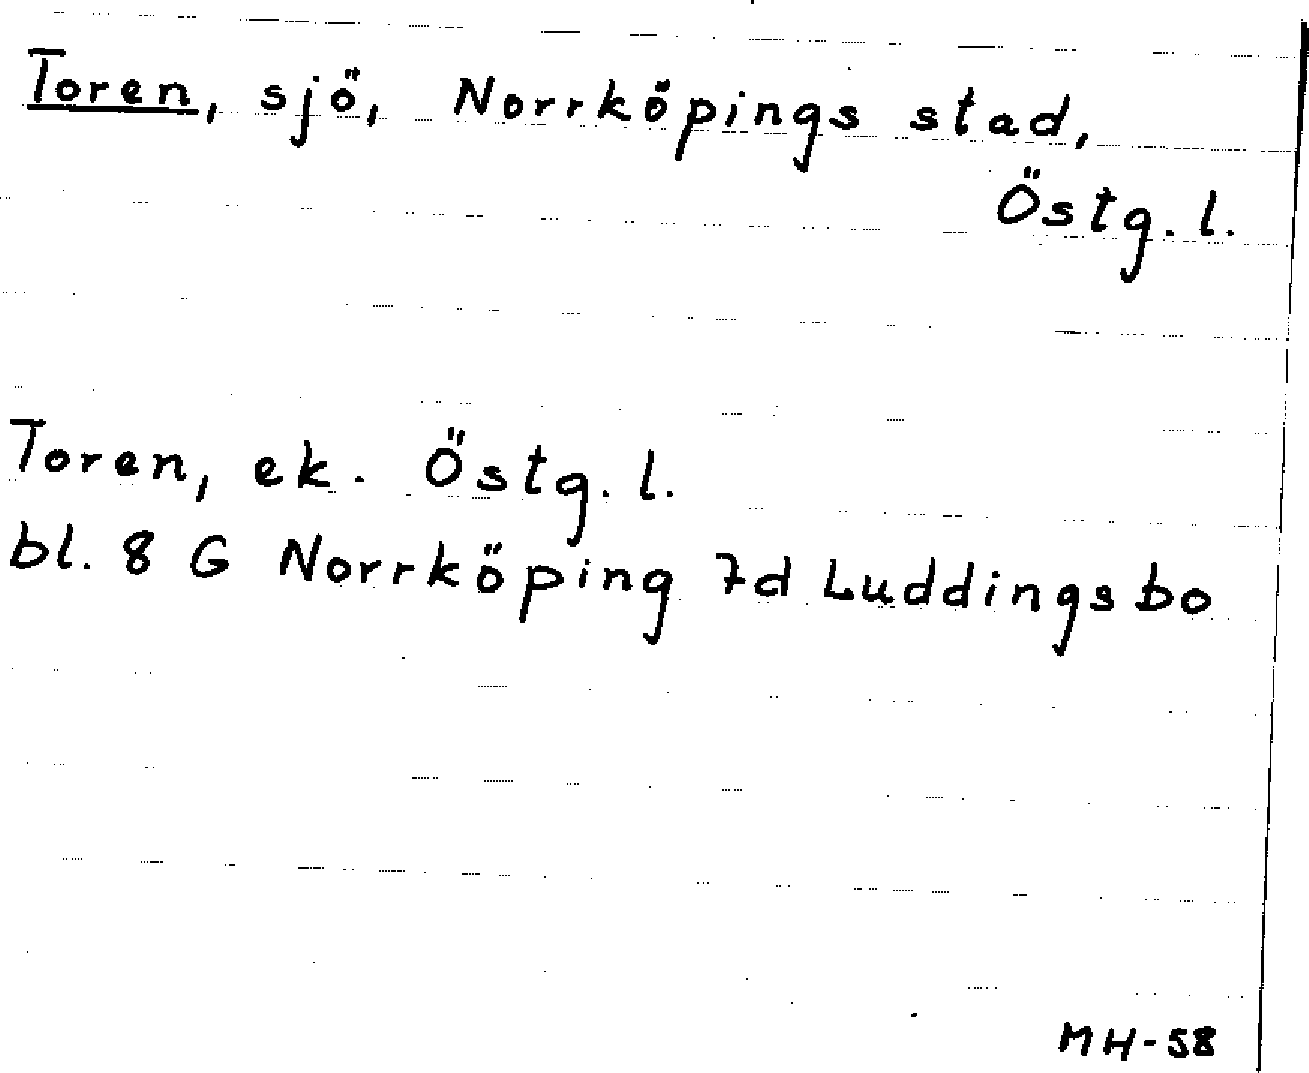 Toren, sjö, Norrköpings stad,
Östg. l.
Toren, ek. Östg. l.
bl. 8 G Norrköping 7d Luddingsbo
MH-58